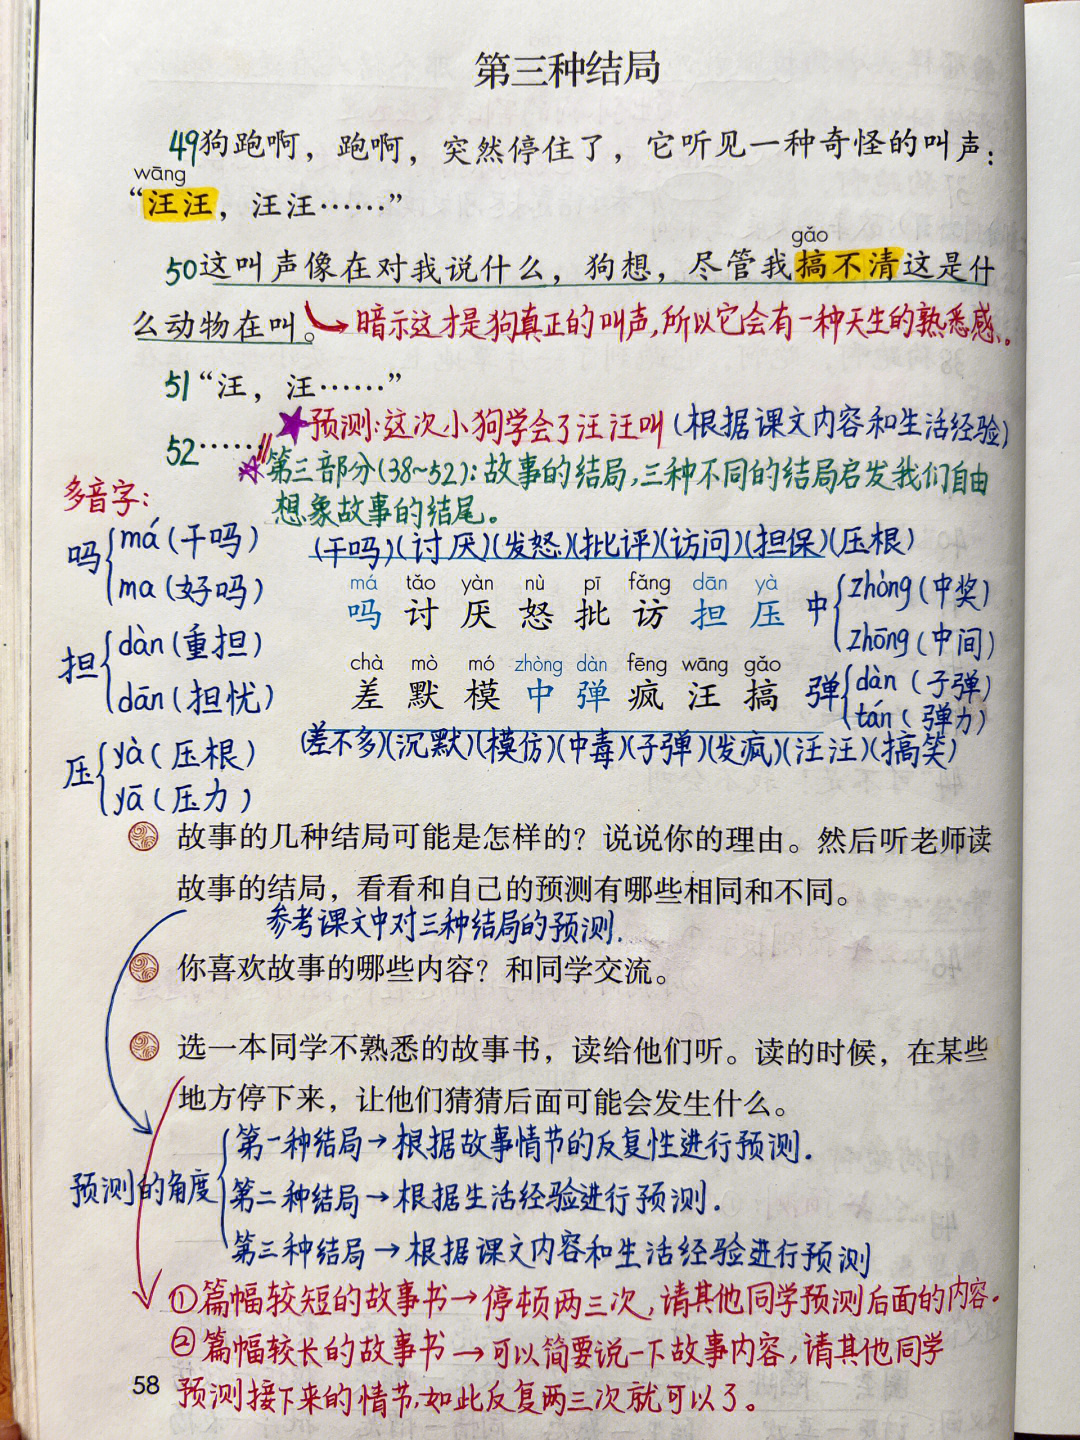 第三种结局
49狗跑啊，跑啊，突然停住了，它听见一种奇怪的叫声：
wāng
“汪汪，汪汪……”
gǎo
50这叫声像在对我说什么，狗想，尽管我搞不清这是什
么动物在叫。暗示这才是狗真正的叫声，所以它会有一种天生的熟悉感。
51“汪，汪……”
预测：这次小狗学会了汪汪叫（根据课文内容和生活经验）
52……
第三部分（38~52）：故事的结局，三种不同的结局启发我们自由
想象故事的结尾。
多音字：
吗 má（干吗）
ma（好吗）
担 dàn（重担）
dān（担忧）
压 yà（压根）
yā（压力）
（干吗）（讨厌）（发怒）（批评）（访问）（担保）（压根）
má tǎo yàn nù pī fǎng dān yà
吗 讨 厌 怒 批 访 担 压
中 zhòng（中奖）
zhōng（中间）
chà mò mó zhòng dàn fēng wāng gǎo
差 默 模 中 弹 疯 汪 搞
弹 dàn（子弹）
tán（弹力）
（差不多）（沉默）（模仿）（中毒）（子弹）（发疯）（汪汪）（搞笑）
故事的几种结局可能是怎样的？说说你的理由。然后听老师读
故事的结局，看看和自己的预测有哪些相同和不同。
参考课文中对三种结局的预测.
你喜欢故事的哪些内容？和同学交流。
选一本同学不熟悉的故事书，读给他们听。读的时候，在某些
地方停下来，让他们猜猜后面可能会发生什么。
预测的角度
第一种结局→根据故事情节的反复性进行预测.
第二种结局→根据生活经验进行预测.
第三种结局→根据课文内容和生活经验进行预测
①篇幅较短的故事书→停顿两三次，请其他同学预测后面的内容.
②篇幅较长的故事书→可以简要说一下故事内容，请其他同学
预测接下来的情节，如此反复两三次就可以了。
58